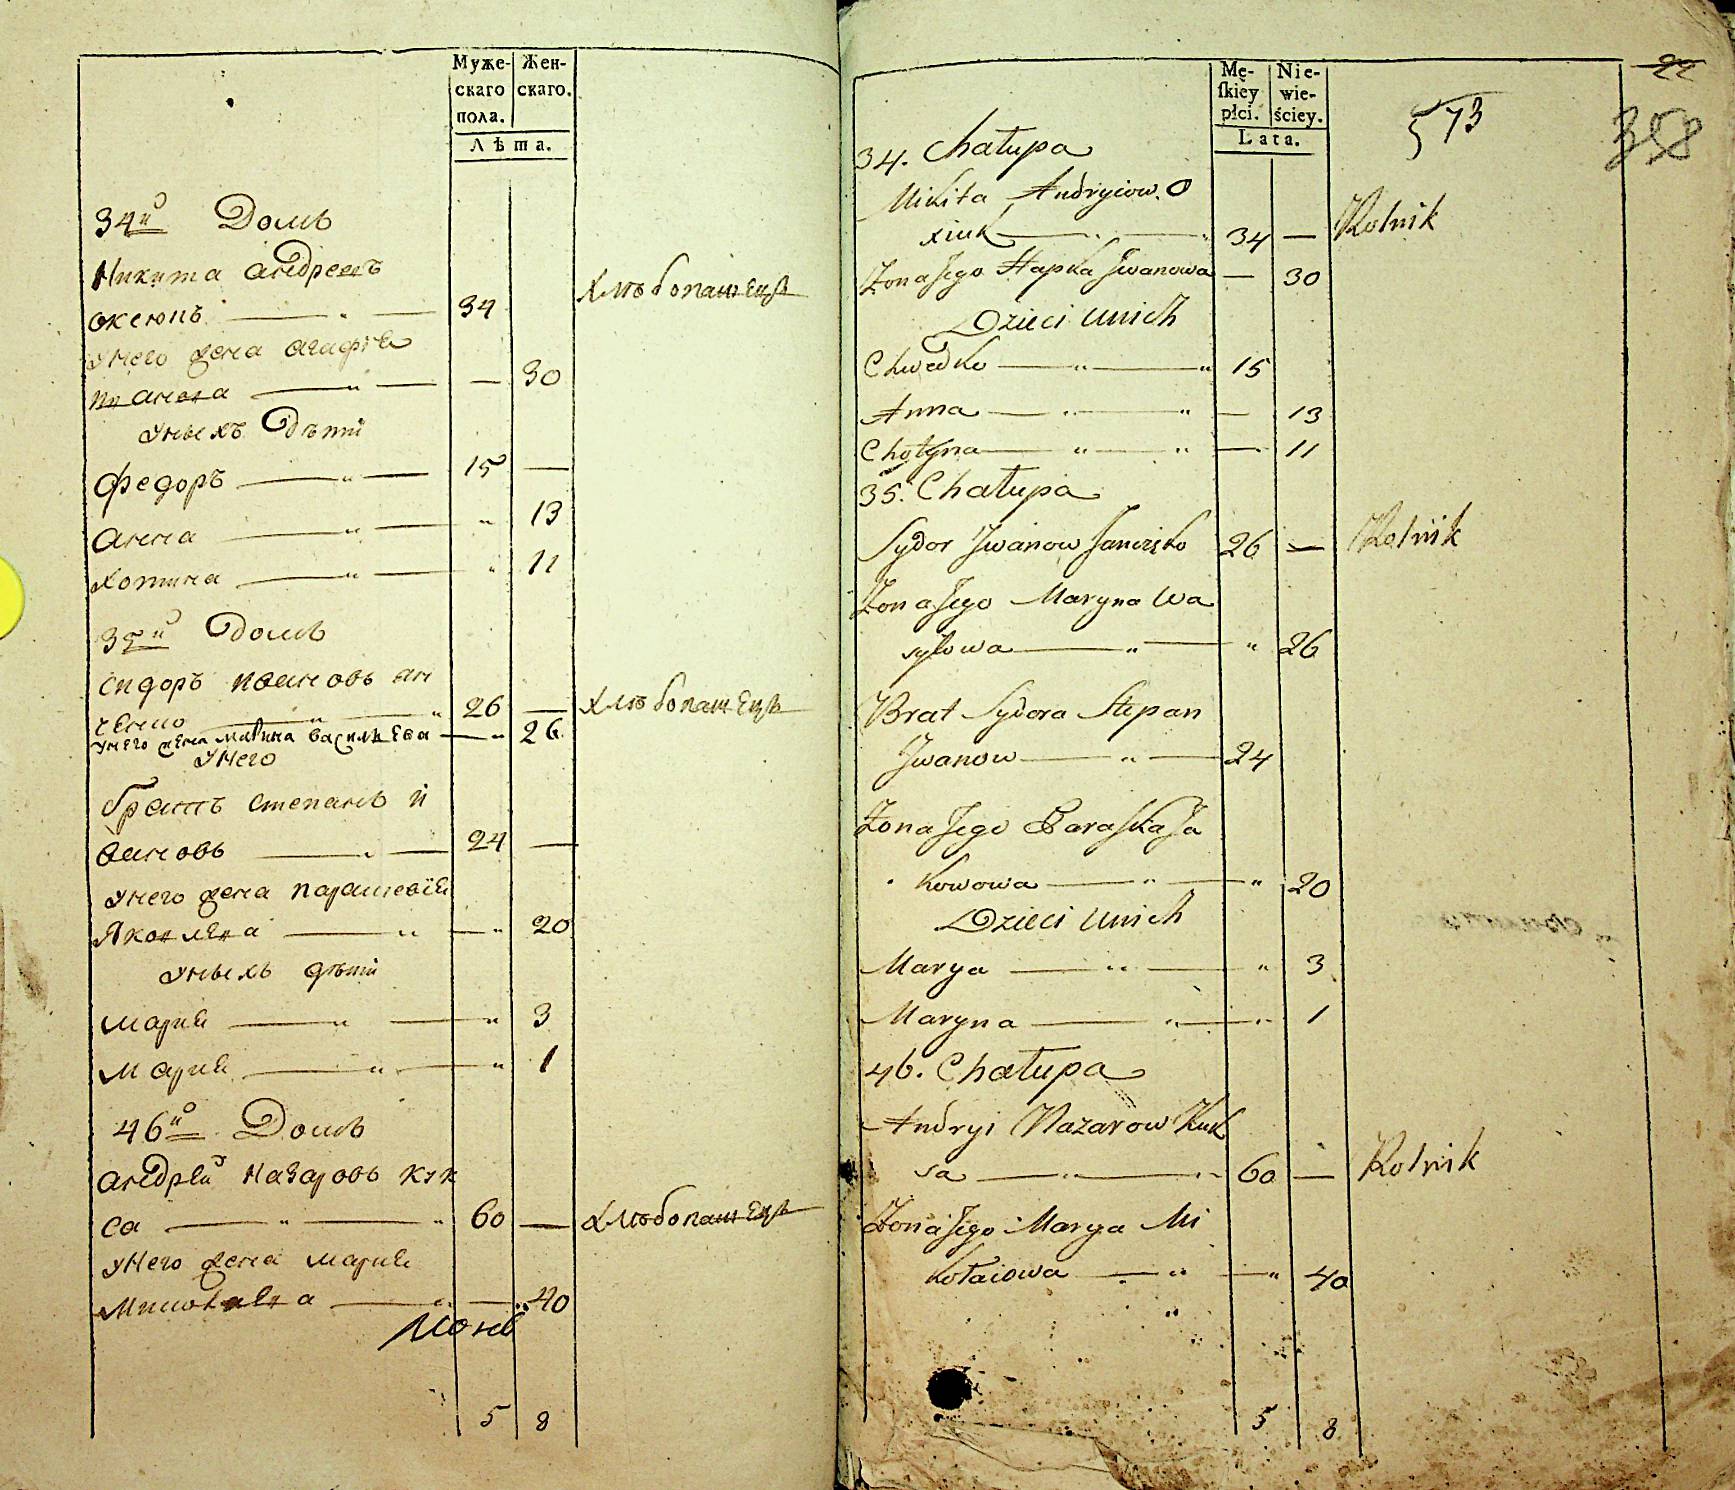 Муже-
скаго
пола.
Жен-
скаго.
Лѣта.
34й Домъ
Никита Андреевъ
Оксюкъ — " — 34
Хлѣбопашецъ
у него жена Агафія
Иванова — " — — 30
у ныхъ дѣти
Федоръ — " — 15 —
Анна — " — " 13
Хотина — " — " 11
35й Домъ
Сидоръ Ивановъ Ян
ченко — " — " 26 — Хлѣбопашецъ
у него жена Марина Василѣева — " 26
у него
братъ Степанъ И
вановъ — " — 24 —
у него жена Парашевія
Яковлева — " — " 20
у ныхъ дѣти
Мария — " — " 3
Мария — " — " 1
46й Домъ
Андрей Назаровъ Кук
са — " — " 60 — Хлѣбопашецъ
у него жена Мария
— " — " 40
5 8
22
573
358
Mę-
ſkiey
płci.
Nie-
wie-
ściey.
Lata.
34. Chałupa
Mikita Andryiow. O
xiuk — " — " 34 — Rolnik
Zona Jego Hapka Jwanowa — 30
Dzieci Unich
Chwedko — " — " 15
Anna — " — " — 13
Chotyna — " — " — 11
35. Chałupa
Sydor Jwanow Janczęko 26 — Rolnik
Zona Jego Maryna Wa
sylowa — " — " 26
Brat Sydora Stepan
Jwanow — " — 24
Zona Jego Paraſka Ja
kowowa — " — " 20
Dzieci Unich
Marya — " — " 3
Maryna — " — " 1
46. Chałupa
Andryi Nazarow Kuk
sa — " — " 60 — Rolnik
Zona Jego Marya Mi
kołaiowa — " — " 40
"
5 8